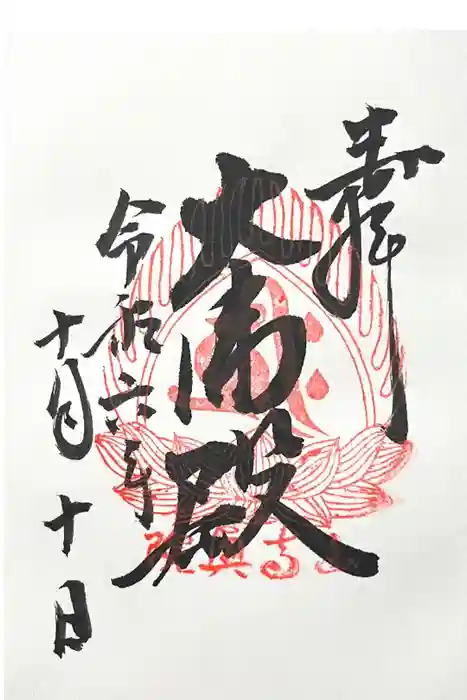 奉拝
大師殿
令和六年
十月十日